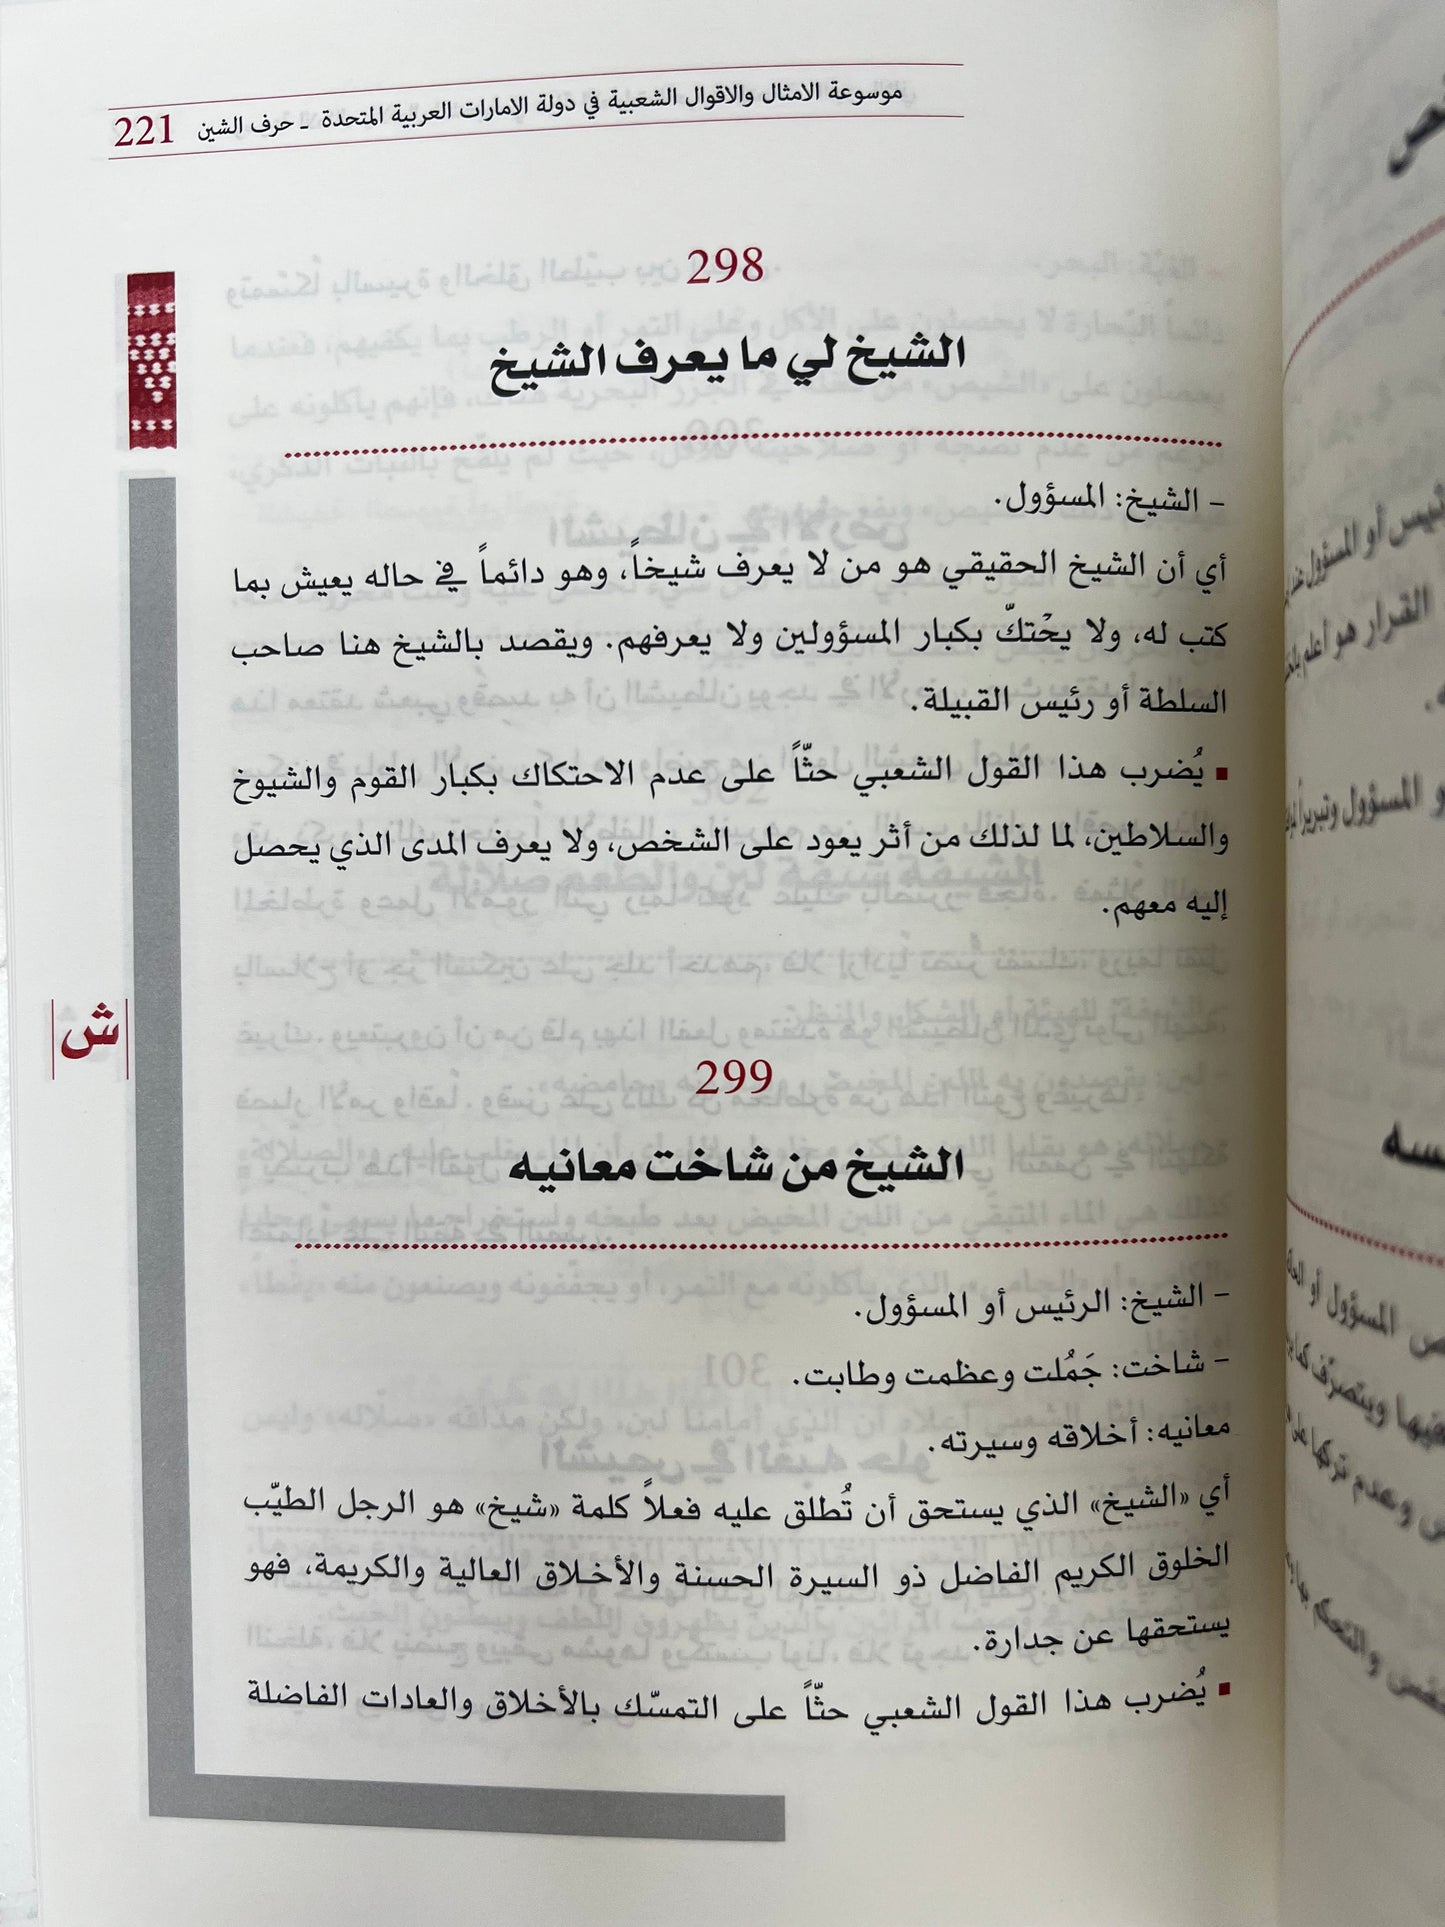 موسوعة الامثال والاقوال الشعبية في دولة الامارات العربية المتحدة - حرف الشين 221
298
الشيخ لي ما يعرف الشيخ
– الشيخ: المسؤول.
أي أن الشيخ الحقيقي هو من لا يعرف شيخاً، وهو دائماً في حاله يعيش بما
كتب له، ولا يحْتكّ بكبار المسؤولين ولا يعرفهم. ويقصد بالشيخ هنا صاحب
السلطة أو رئيس القبيلة.
▪ يُضرب هذا القول الشعبي حثّاً على عدم الاحتكاك بكبار القوم والشيوخ
والسلاطين، لما لذلك من أثر يعود على الشخص، ولا يعرف المدى الذي يحصل
إليه معهم.
ش
299
الشيخ من شاخت معانيه
– الشيخ: الرئيس أو المسؤول.
– شاخت: جَمُلت وعظمت وطابت.
معانيه: أخلاقه وسيرته.
أي «الشيخ» الذي يستحق أن تُطلق عليه فعلاً كلمة «شيخ» هو الرجل الطيّب
الخلوق الكريم الفاضل ذو السيرة الحسنة والأخلاق العالية والكريمة، فهو
يستحقها عن جدارة.
▪ يُضرب هذا القول الشعبي حثّاً على التمسّك بالأخلاق والعادات الفاضلة